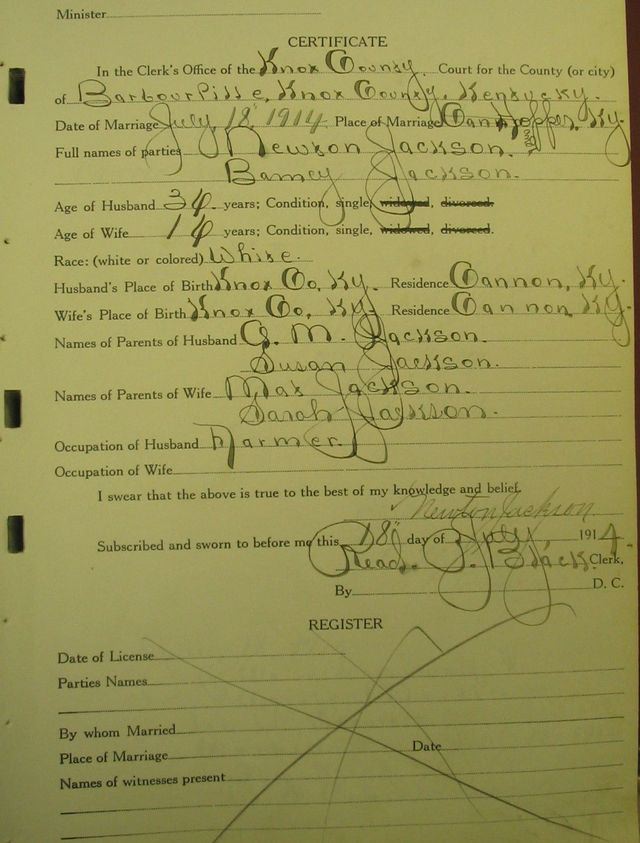 Minister
CERTIFICATE
In the Clerk's Office of the Knox County. Court for the County (or city)
of Barbourville, Knox County, Kentucky.
Date of Marriage July, 18" 1914 Place of Marriage Ky.
Full names of parties Newton Jackson.
Jackson.
Age of Husband 34. years; Condition, single, widowed, divorced.
Age of Wife 14 years; Condition, single, widowed, divorced.
Race: (white or colored) White.
Husband's Place of Birth Knox Co, Ky. Residence Cannon, Ky.
Wife's Place of Birth Knox Co, Ky. Residence Cannon, Ky.
Names of Parents of Husband G. M. Jackson.
Susan Jackson.
Names of Parents of Wife Jackson.
Sarah Jackson.
Occupation of Husband Farmer.
Occupation of Wife
I swear that the above is true to the best of my knowledge and belief.
Newton Jackson
Subscribed and sworn to before me this 18" day of July, 1914.
Read. P. Black. Clerk,
By D. C.
REGISTER
Date of License
Parties Names
By whom Married
Place of Marriage Date
Names of witnesses present